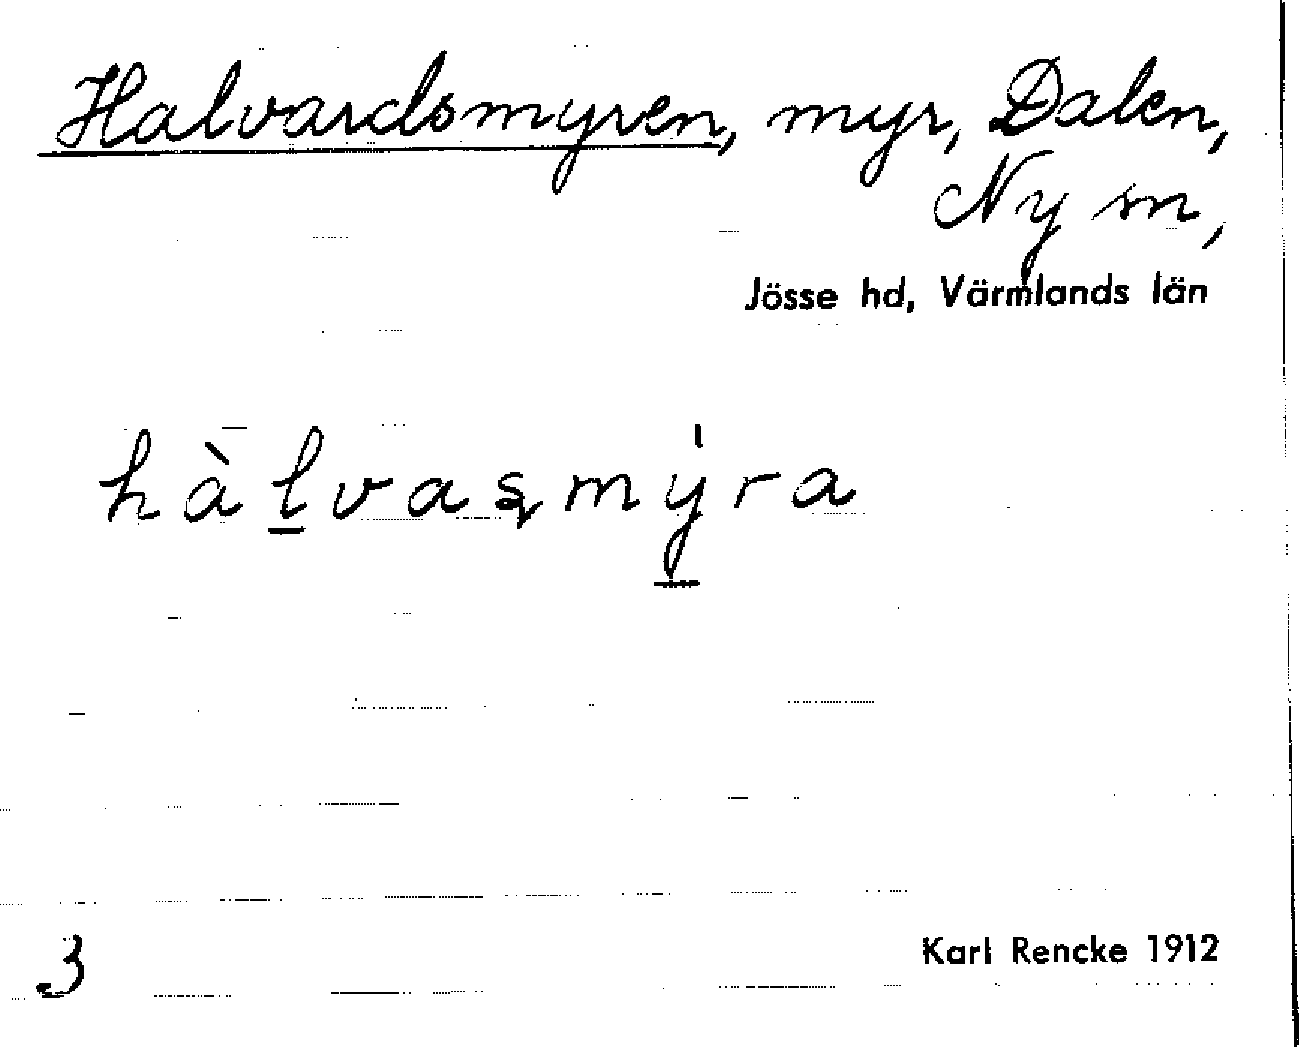 Halvardsmyren, myr, Dalen,
Ny sn,
Jösse hd, Värmlands län
hàl̲vaʂmy̲̍ra
3
Karl Rencke 1912